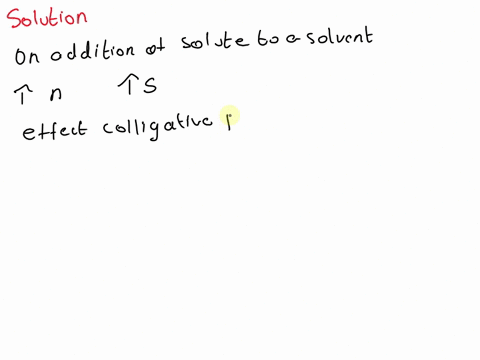 Solution
On addition of solute to a solvent
↑ n ↑ S
effect colligative p